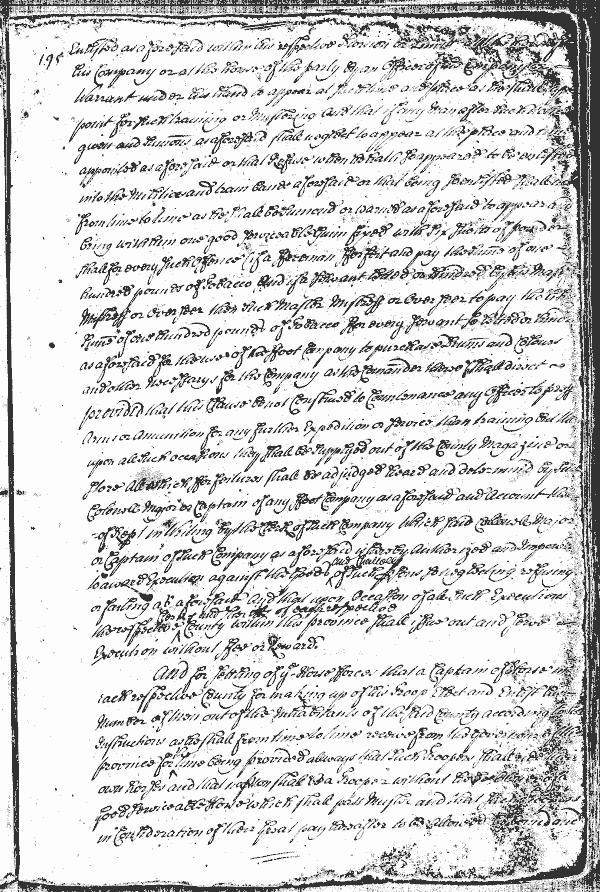 195
Enlisted as aforesaid within his respective Division or Limitt
his Company or at the house of the party by an Officer of said Company
Warrant under his hand to appear at such time and place as he shall ap
point for such training or Mustering And that if any man after such
given and Sumons as aforesaid shall neglect to appear at the place and
appointed as aforesaid or that Refuse when he hath so appeared to be enlisted
into the Militia and train bands aforesaid or that being so enlisted shall
from time to time as he shall be Sumond or warned as aforesaid to appear and
bring with him one good serviceable Gunn fixed with Six Shots of powder
shall for every such offence if a freeman forfeit and pay the sume of one
hundred pounds of Tobacco And if a Servant letted or hindred by his Master
Mistress or Overseer then such Master Mistress or Overseer to pay the like
sume of one hundred pounds of Tobacco for every Servant so letted or hind
as aforesaid for the use of the foot Company to purchase Drums and Colours
and other necessarys for the Company as the Comander thereof shall direct
provided that this Clause be not Construed to Countenance any Officer to press
Arms or Amunition for any further Expedition or Service than training but that
upon all such occasions they shall be Supplyed out of the County Magazine or
Store All which fforfeitures shall be adjudged heard and determined by such
Colonell Major or Captain of any ffoot Company as aforesaid and Account
of kept in Writing by the Clerk of such Company Which said Colonell Major
or Captain of such Company as aforesaid is hereby Authorized and Impowe
and Chattells
to award Execution against the Goods of such persons so neglecting refusing
or failing as aforesaid And that upon Occasion of all such Executions
of each respective
the respective County within this province shall issue out and serve
Execution without ffee or Reward.
And for settling of ye Horse fforces that a Captain of Horse in
each respective County for making up of his Troop Elect and Enlist the
Number of Men out of the Inhabitants of the said County according to
Instructions as he shall from time to time receive from the Governor of this
province for ye time being provided always that such troopers shall
own horses and that no person shall be a trooper without
good serviceable Horse which shall pass Muster and that
in Consideration of their Great pay hereafter to be allowed